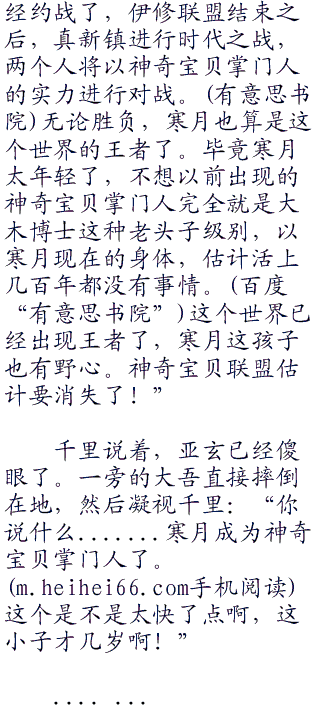 经约战了，伊修联盟结束之
后，真新镇进行时代之战，
两个人将以神奇宝贝掌门人
的实力进行对战。(有意思书
院)无论胜负，寒月也算是这
个世界的王者了。毕竟寒月
太年轻了，不想以前出现的
神奇宝贝掌门人完全就是大
木博士这种老头子级别，以
寒月现在的身体，估计活上
几百年都没有事情。(百度
“有意思书院”)这个世界已
经出现王者了，寒月这孩子
也有野心。神奇宝贝联盟估
计要消失了！”
千里说着，亚玄已经傻
眼了。一旁的大吾直接摔倒
在地，然后凝视千里：“你
说什么.......寒月成为神奇
宝贝掌门人了。
(m.heihei66.com手机阅读)
这个是不是太快了点啊，这
小子才几岁啊！”
.... ...